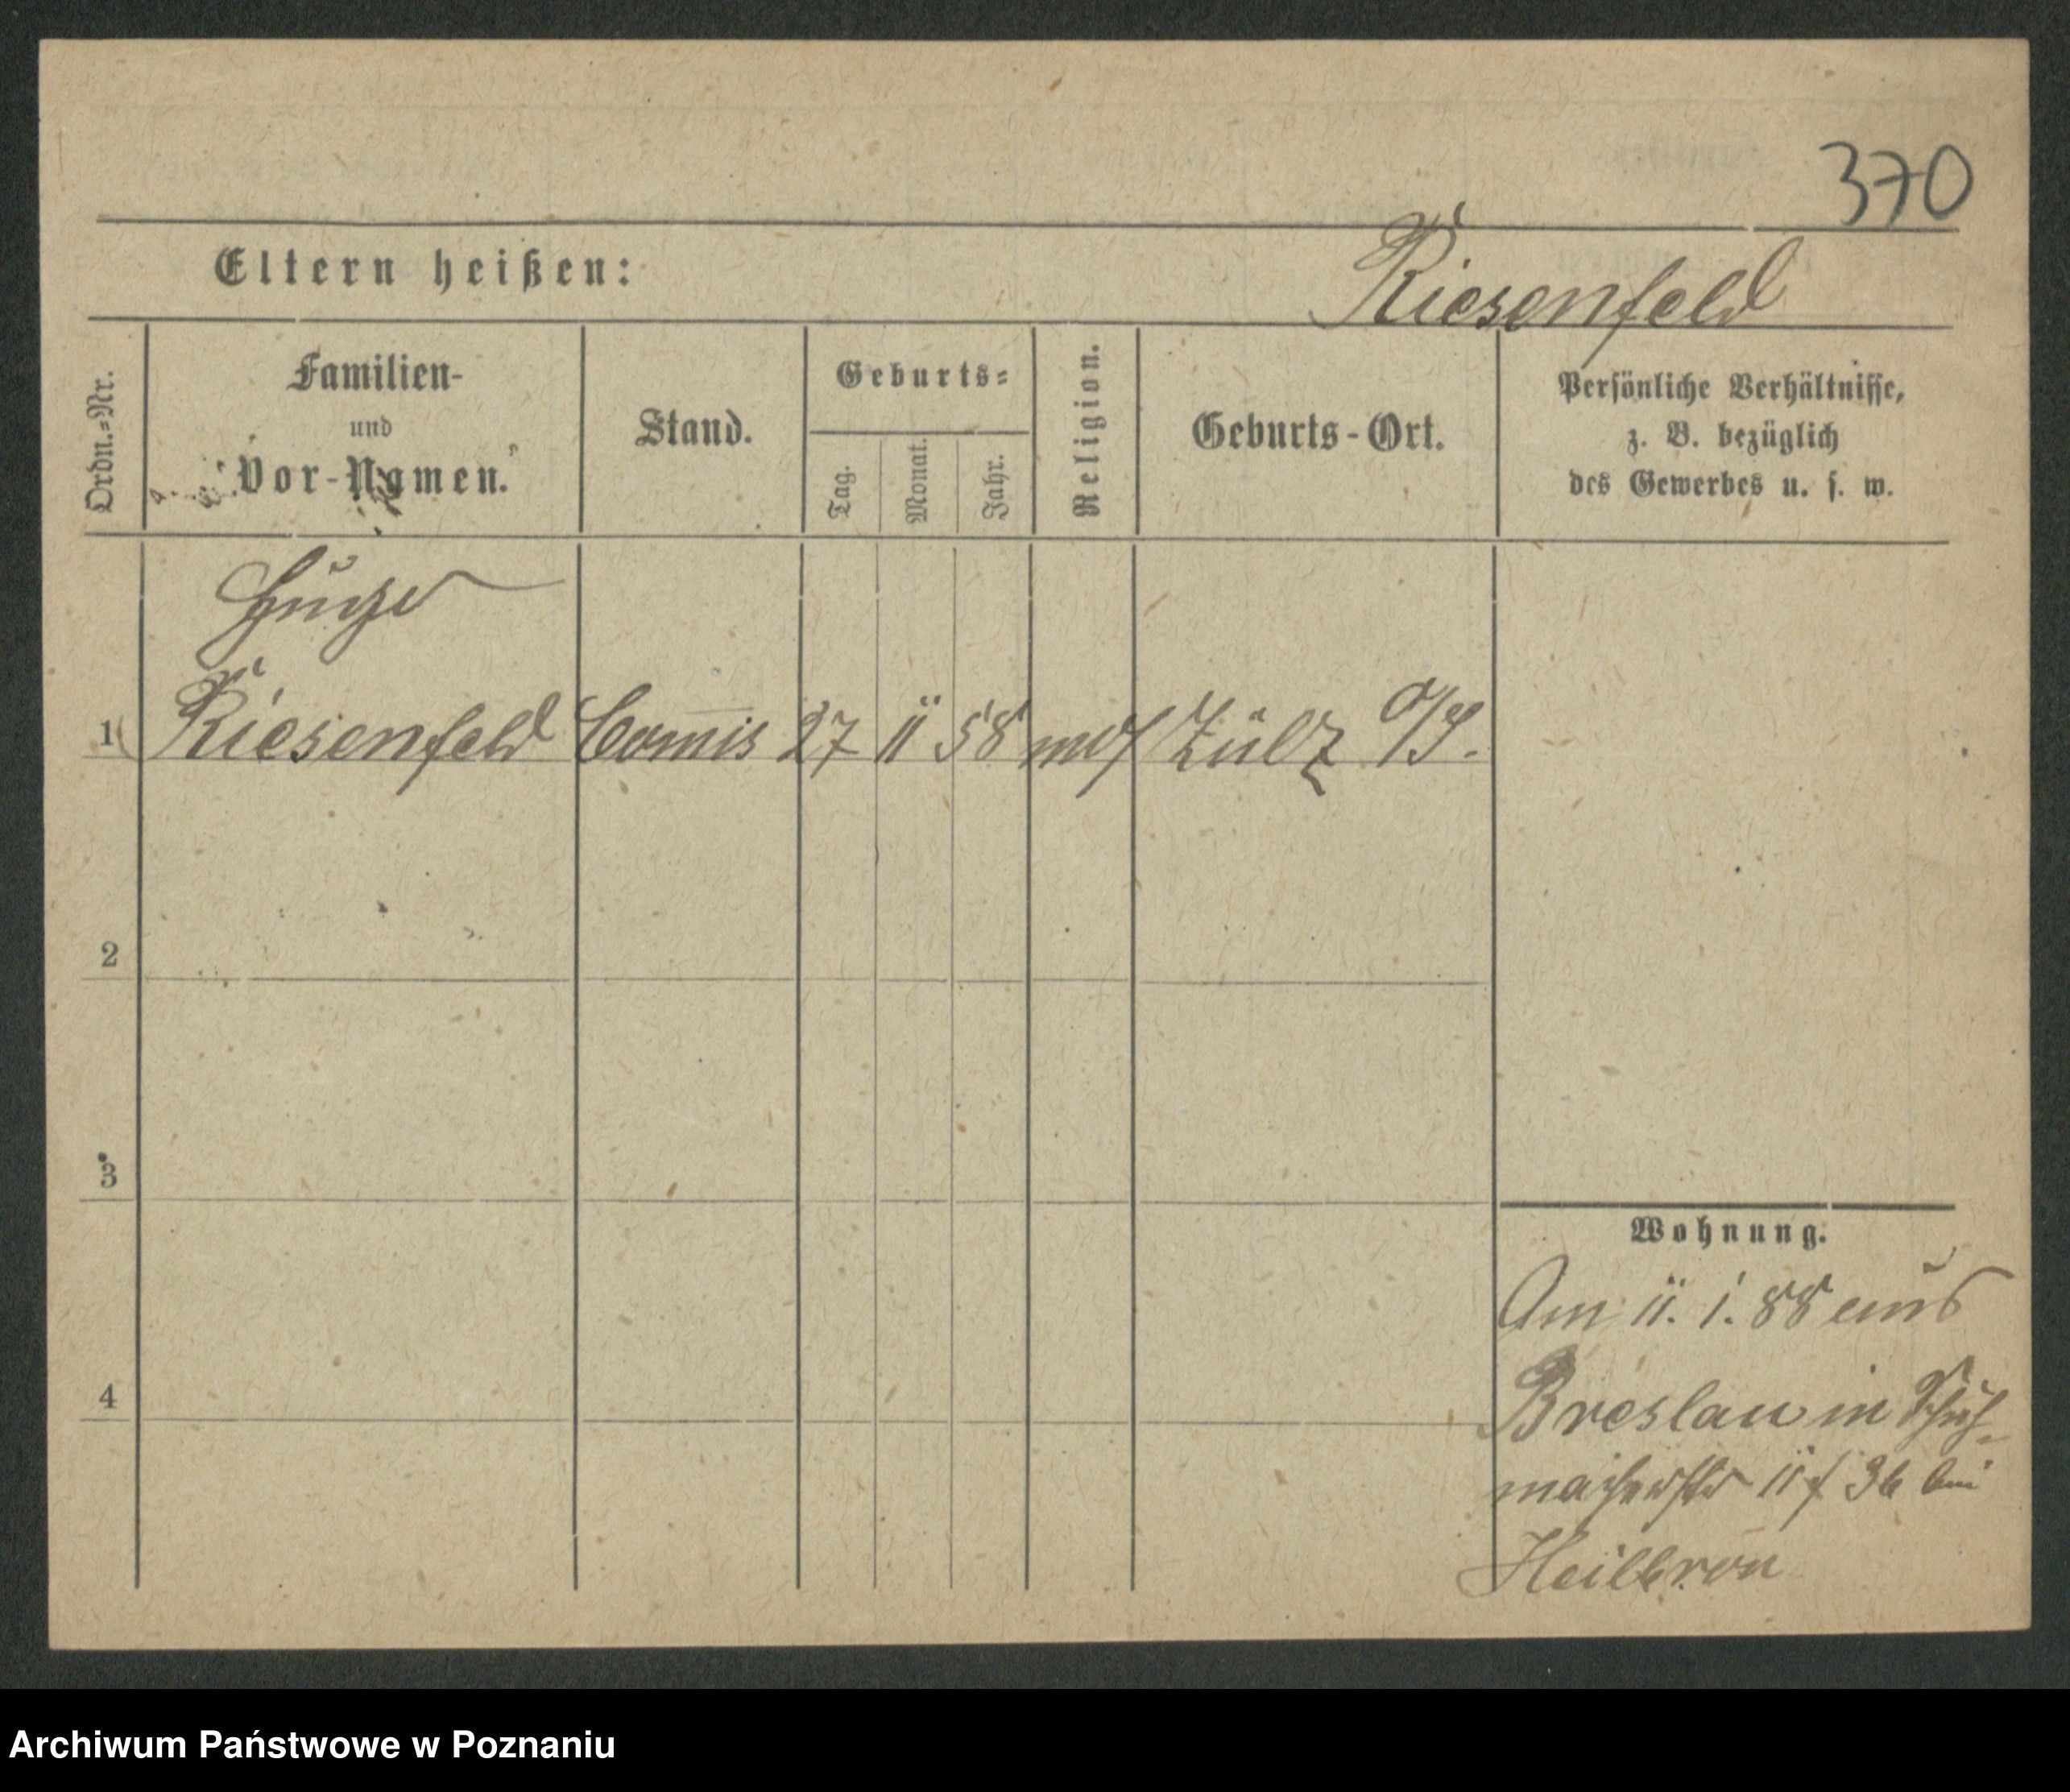 370
Eltern heißen:
Riesenfeld
Ordn.-Nr.
Familien-
und
Vor-Namen.
Stand.
Geburts-
Tag.
Monat.
Jahr.
Religion.
Geburts-Ort.
Persönliche Verhältnisse,
z. B. bezüglich
des Gewerbes u. s. w.
Hugo
1 Riesenfeld Com̅is 27 11 58 mos Zülz O/S.
2
3
4
Wohnung.
Am 11. 1. 88 aus
Breslau in Schuh-
macherstr 11 f 36 bei
Heilbron
Archiwum Państwowe w Poznaniu